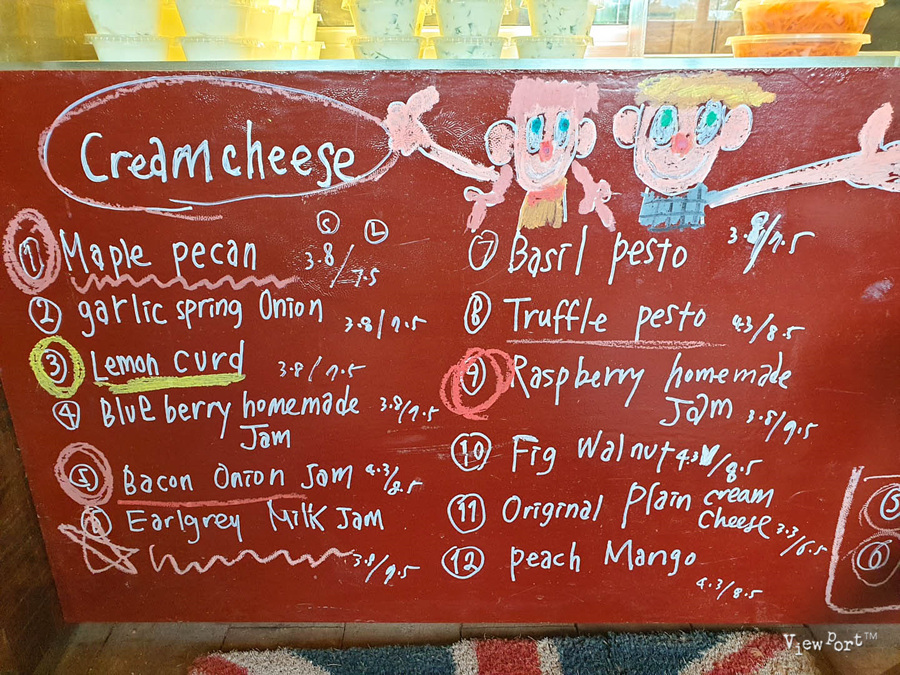 Creamcheese
S L
① Maple pecan 3.8/7.5
② garlic spring Onion 3.8/7.5
③ Lemon curd 3.8/7.5
④ Blueberry homemade
Jam 3.8/7.5
⑤ Bacon Onion Jam 4.3/8.5
⑥ Earlgrey Milk Jam
3.8/7.5
⑦ Basil pesto 3.8/7.5
⑧ Truffle pesto 4.3/8.5
⑨ Raspberry homemade
Jam 3.8/7.5
⑩ Fig Walnut 4.3/8.5
⑪ Original Plain cream
Cheese 3.3/6.5
⑫ peach Mango
4.3/8.5
⑤
⑥
Viewport™